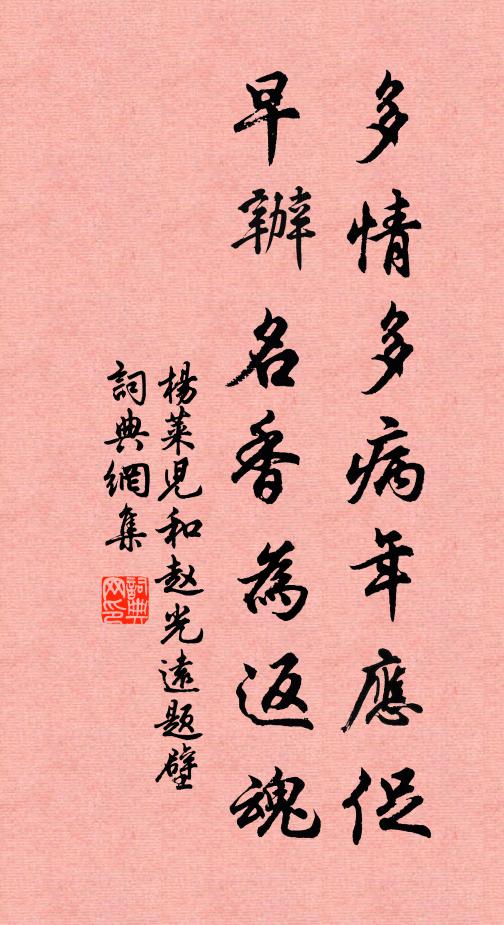 多情多病年應促
早辦名香為返魂
楊萊児和赵光遠題壁
詞典網集
詞典网印